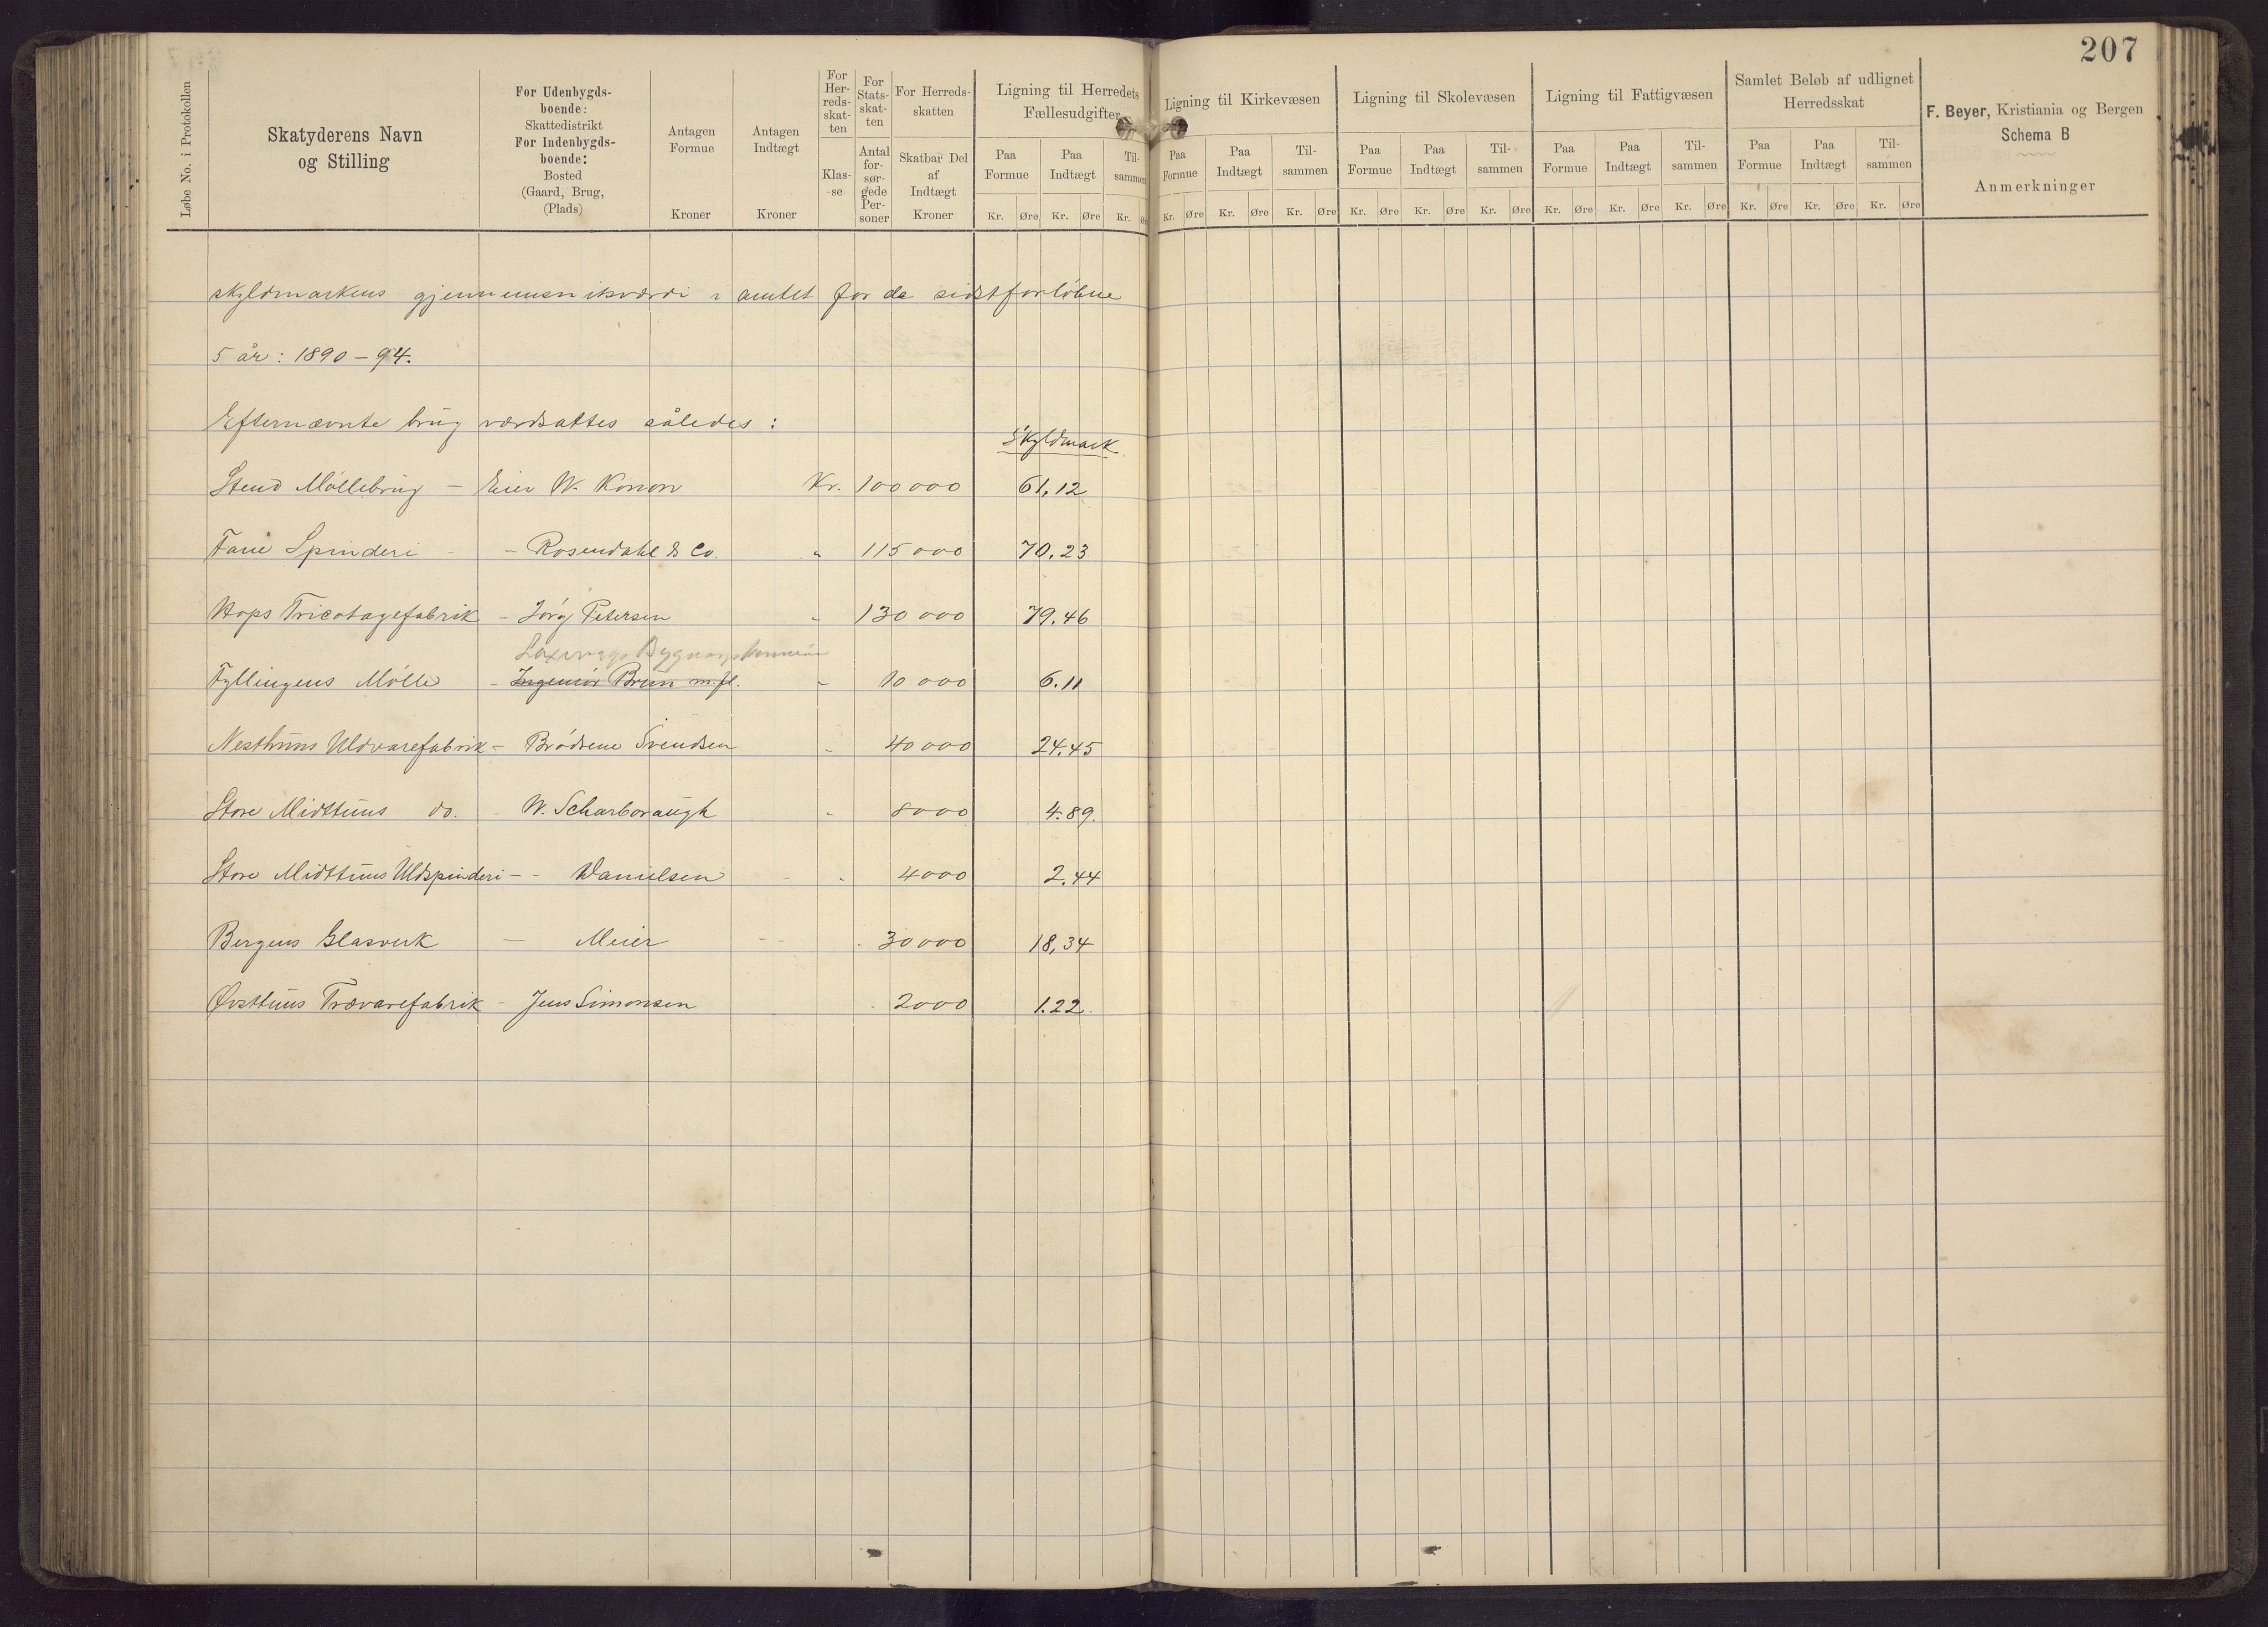 207
Løbe No. i Protokollen
Skatyderens Navn
og Stilling
For Udenbygds-
boende:
Skattedistrikt
For Indenbygds-
boende:
Bosted
(Gaard, Brug,
(Plads)
Antagen
Formue
Kroner
Antagen
Indtægt
Kroner
For
Her-
reds-
skat-
ten
Klas-
-se
For
Stats-
skat-
ten
Antal
for-
sør-
gede
Per-
soner
For Herreds-
skatten
Skatbar Del
af
Indtægt
Kroner
Ligning til Herredets
Fællesudgifter
Paa Formue Paa Indtægt Til-sammen
Kr. Øre Kr. Øre Kr. Øre
Ligning til Kirkevæsen
Paa Formue Paa Indtægt Til-sammen
Kr. Øre Kr. Øre Kr. Øre
Ligning til Skolevæsen
Paa Formue Paa Indtægt Til-sammen
Kr. Øre Kr. Øre Kr. Øre
Ligning til Fattigvæsen
Paa Formue Paa Indtægt Til-sammen
Kr. Øre Kr. Øre Kr. Øre
Samlet Beløb af udlignet
Herredsskat
Paa Formue Paa Indtægt Til-sammen
Kr. Øre Kr. Øre Kr. Øre
F. Beyer, Kristiania og Bergen
Schema B
Anmerkninger
skyldmarkens gjennemsnitsværdi i amtet for de sidstforløbne
5 år: 1890–94.
Efternævnte brug værdsattes således:
Skyldmark
Stend Møllebrug – Eier W. Konow Kr. 100000 61,12
Fane Spinderi - – Rosendahl & Co. " 115000 70.23
Hops Tricotagefabrik – Jørg Petersen " 130000 79.46
Laxevags Bygnings
Fyllingens Mølle – Ingeniør Brun m.fl. " 10000 6.11
Nesthuns Uldvarefabrik – Brødrene Svendsen " 40000 24.45
Store Midttuns do. - W. Scharboraugh " 8000 4.89.
Store Midttuns Uldspinderi – - Danielsen - " 4000 2.44
Bergens Glasverk – Meier - - 30000 18,34
Øvsttuns Trævarefabrik – Jens Simonsen 2000 1.22.